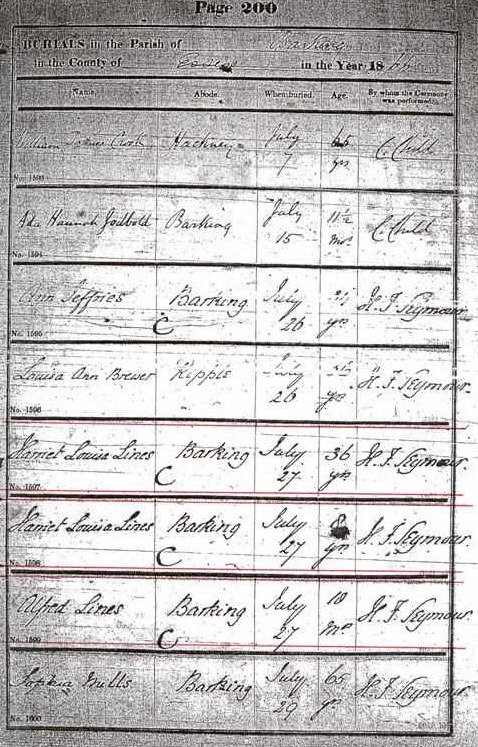 Page 200
BURIALS in the Parish of Barking
in the County of Essex in the Year 18
Name. Abode. When buried. Age. By whom the Ceremony was performed.
William James Hackney July 7 yrs C. Child
No. 1593
Ada Hannah Godbold Barking July 15 11½ Mos C. Child
No. 1594
Ann Jeffries Barking C July 26 yrs H. F. Seymour.
No. 1595
Louisa Ann Brewer Ripple July 26 yrs H. F. Seymour.
No. 1596
Harriet Louisa Lines Barking C July 27 36 yrs H. F. Seymour.
No. 1597
Harriet Louisa Lines Barking C July 27 8 yrs H. F. Seymour.
No. 1598
Alfred Lines Barking C July 27 10 Mos H. F. Seymour.
No. 1599
Sophia Mills Barking July 29 65 yrs H. F. Seymour
No. 1600